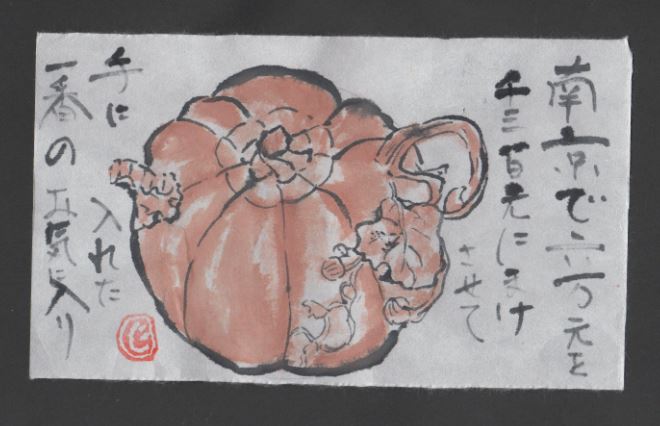 南京で六万元を
千三百元にまけ
させて
手に入れた
一番のお気に入り